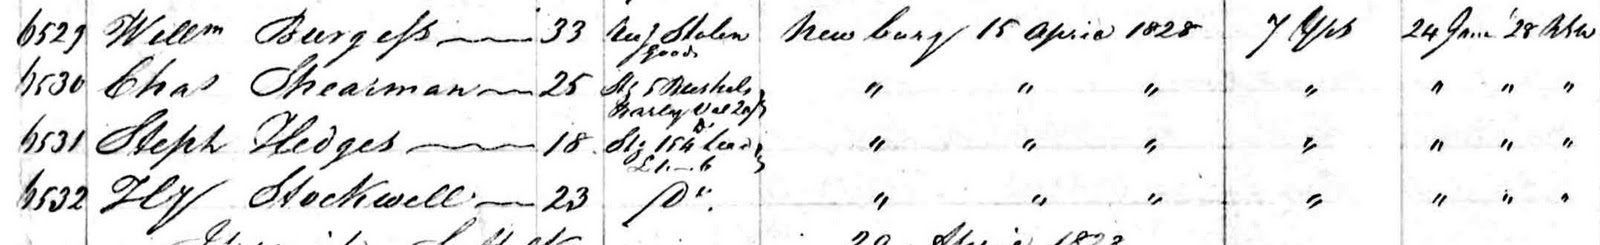 6529 Willm Burgess 33 Recg Stolen Goods Newbury 15 April 1828 7 Yrs 24 June '28 NSW
6530 Chas Shearman 25 Stg 5 Bushels Barley Val 20/ " " " " " " "
6531 Steph Hedges 18 Stg Do " " " " " " "
6532 Hy Stockwell 23 Do. " " " " " " "
1828